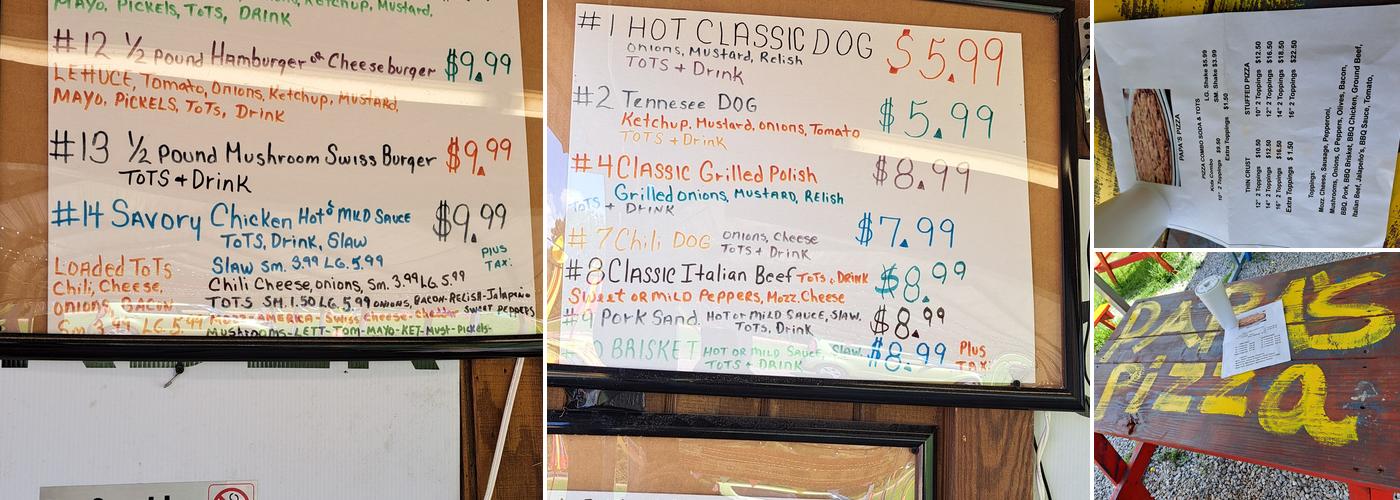 Ketchup, Mustard,
MAYO, PICKELS, TOTS, DRINK
#12 ½ Pound Hamburger or Cheeseburger $9.99
LETTUCE, Tomato, Onions, Ketchup, MUSTARD,
MAYO, PICKELS, TOTS, Drink
#13 ½ Pound Mushroom Swiss Burger $9.99
TOTS + Drink
#14 Savory Chicken Hot & MILD SAUCE $9.99
TOTS, Drink, Slaw
Slaw Sm. 3.99 LG. 5.99
PIUS TAX:
Loaded Tots
Chili, Cheese,
onions, BACON
Sm 3.99 LG. 5.99
Chili Cheese, onions, Sm. 3.99 LG. 5.99
TOTS SM. 1.50 LG. 5.99 onions, BACON-RELISH-Jalapeño
MOZZ-AMERICA-Swiss Cheese-cheddar SWEET PEPPERS
Mushrooms-LETT-TOM-MAYO-KET-Must-Pickels-
#1 HOT CLASSIC DOG $5.99
Onions, Mustard, Relish
TOTS + Drink
#2 Tennesee DOG $5.99
Ketchup, Mustard, onions, Tomato
TOTS + Drink
#4 CLASSIC Grilled Polish $8.99
Grilled onions, MUSTARD, Relish
TOTS + DRINK
#7 Chili DOG Onions, Cheese $7.99
TOTS + Drink
#8 CLASSIC Italian Beef TOTS & DRINK $8.99
SWEET OR MILD PEPPERS, Mozz. Cheese
#9 Pork Sand. HOT or MILD SAUCE, SLAW. $8.99
TOTS, Drink
BRISKET HOT OR MILD SAUCE, SLAW $8.99
TOTS + DRINK
Plus TAX:
PAPA'S PIZZA
PIZZA COMBO SODA & TOTS
Kids Combo LG. Shake $5.99
10" 2 Toppings $9.50 SM. Shake $3.99
Extra Toppings $1.50
THIN CRUST STUFFED PIZZA
12" 2 Toppings $10.50 10" 2 Toppings $12.50
14" 2 Toppings $12.50 12" 2 Toppings $16.50
16" 2 Toppings $16.50 14" 2 Toppings $18.50
Extra Toppings $ 1.50 16" 2 Toppings $22.50
Toppings:
Mozz. Cheese, Sausage, Pepperoni,
Mushrooms, Onions, G Peppers, Olives, Bacon,
BBQ. Pork, BBQ Brisket, BBQ Chicken, Ground Beef,
Italian Beef, Jalapeño's, BBQ Sauce, Tomato,
PAPA'S
Pizza